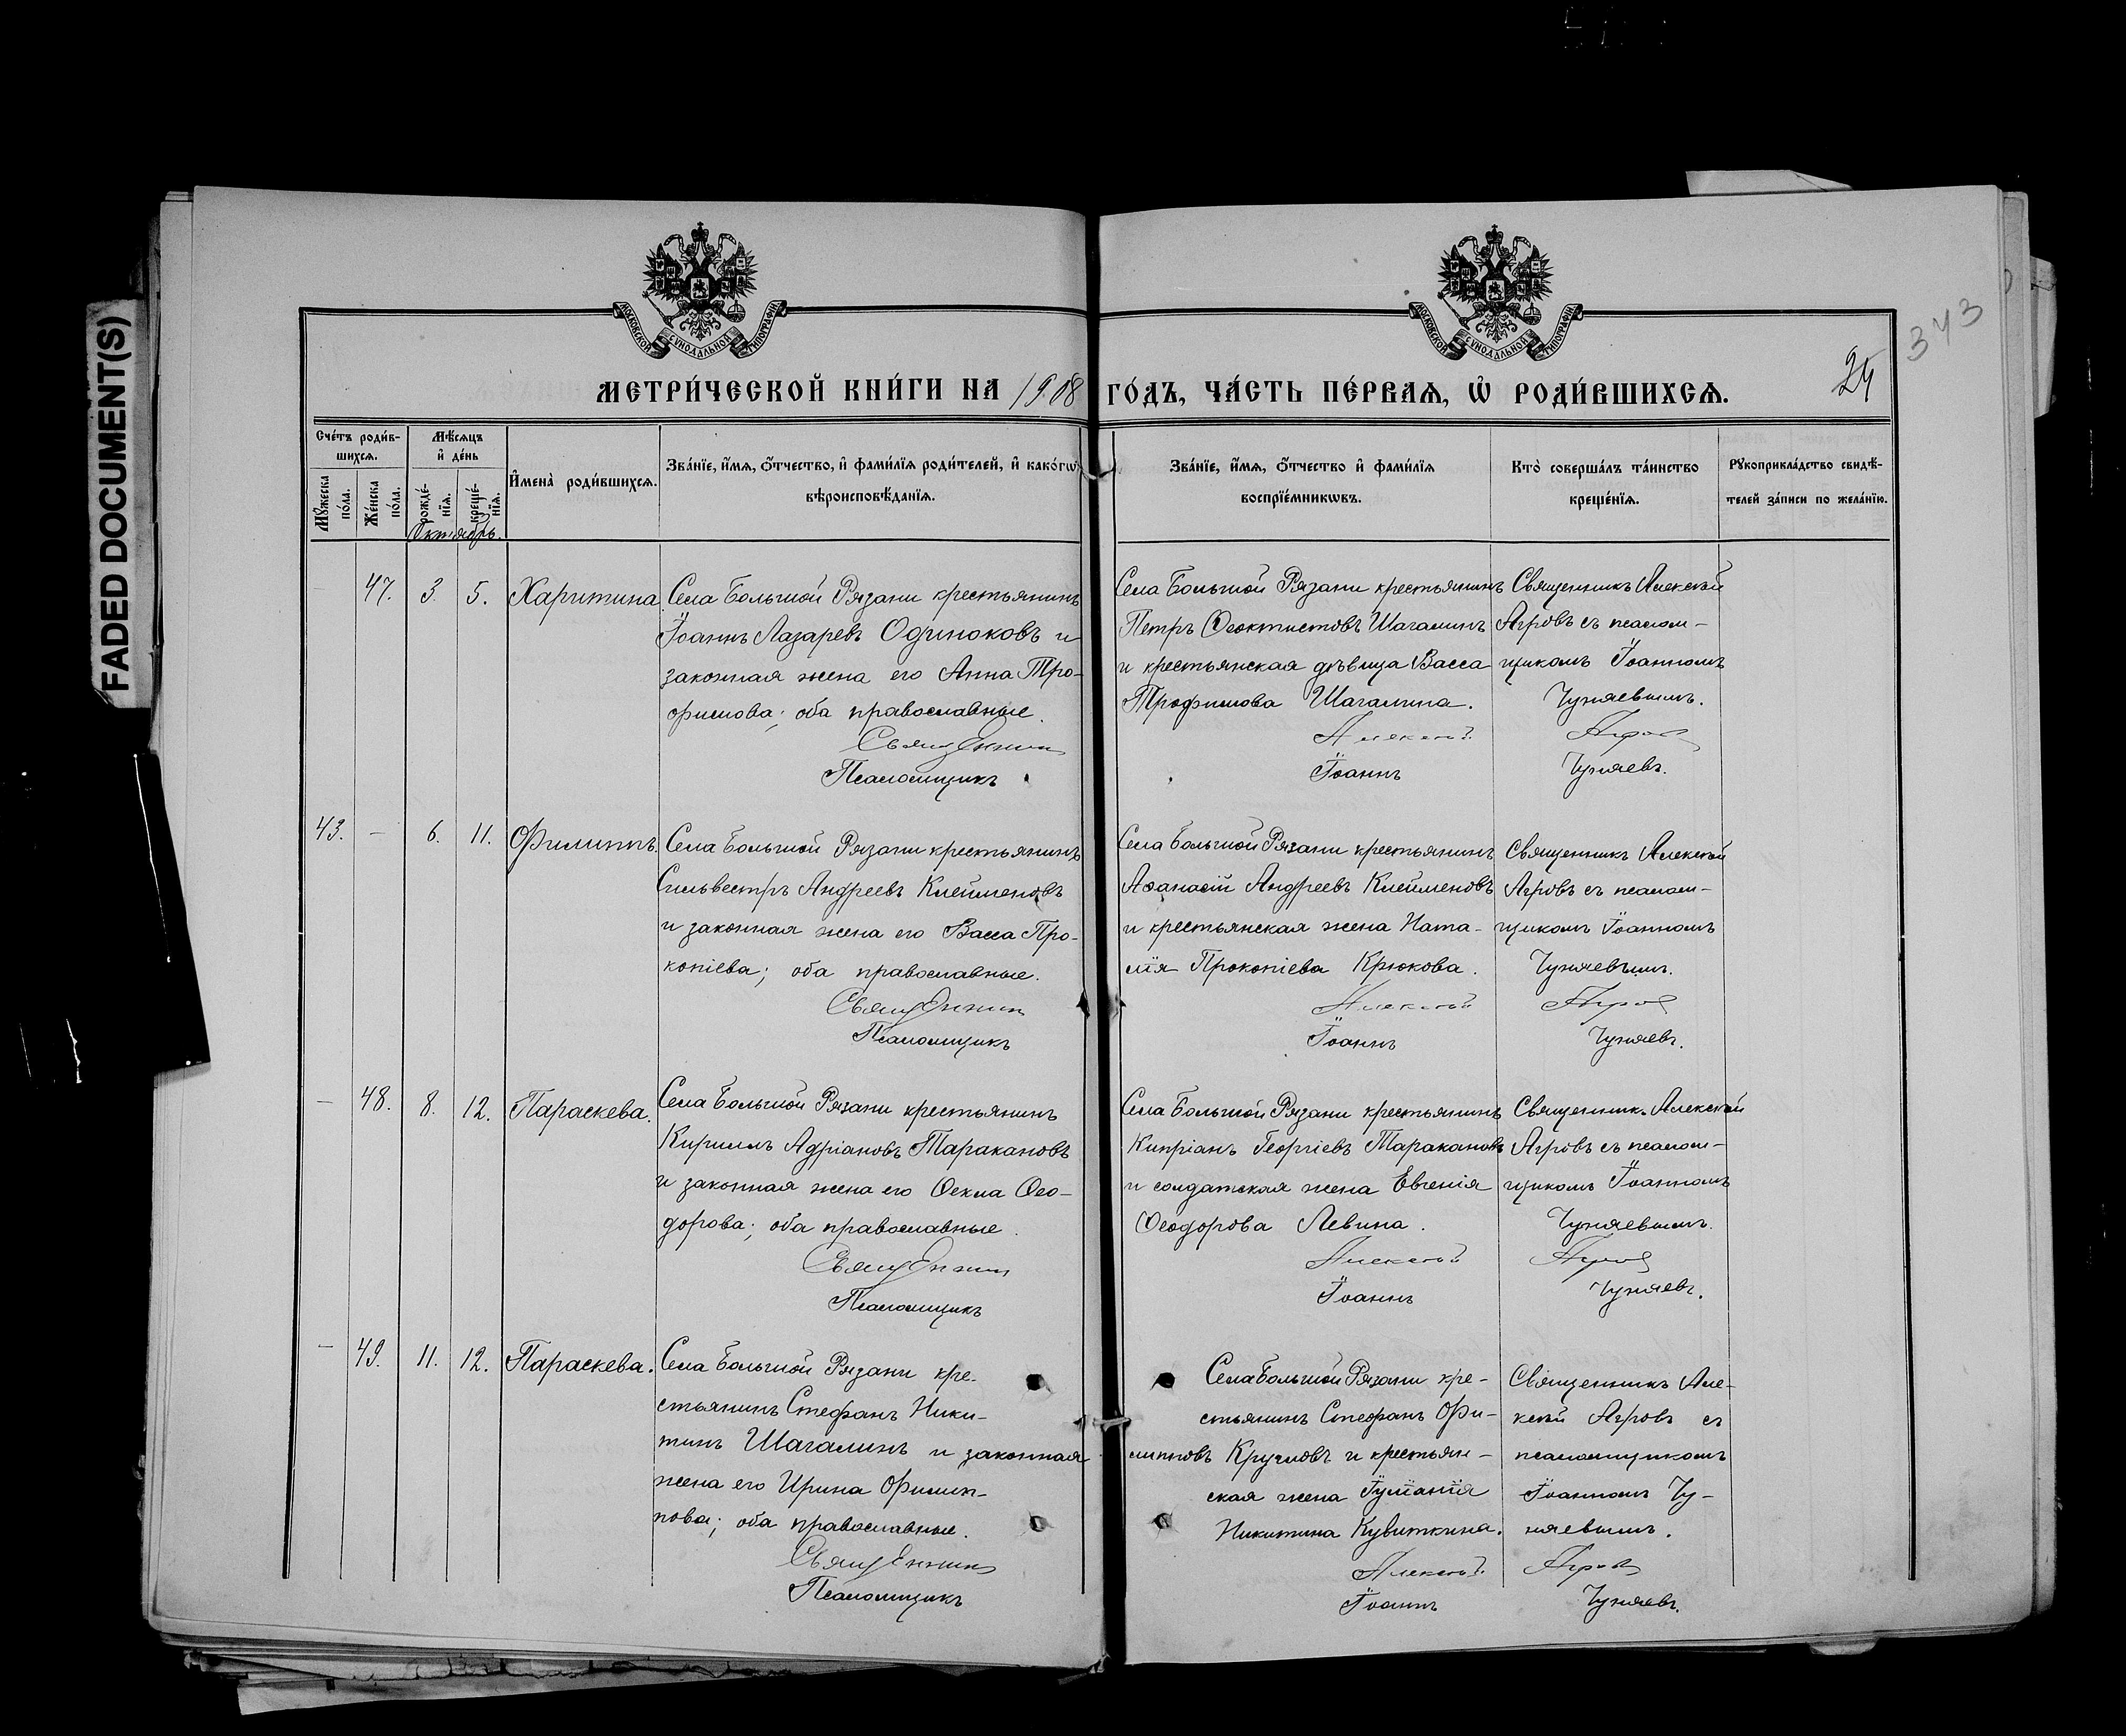 FADED DOCUMENT(S)
343
24
МОСКОВСКОЙ СѴНОДАЛЬНОЙ ТИПОГРАФІИ
МОСКОВСКОЙ СѴНОДАЛЬНОЙ ТИПОГРАФІИ
МЕТРИ́ЧЕСКОЙ КНИ́ГИ НА 1908 ГО́ДЪ, ЧА́СТЬ ПЕ́РВАѦ, Ѡ РОДИ́ВШИХСѦ.
Сче́тъ роди́в-
шихсѧ.
Мꙋ́жеска по́ла.
Же́нска по́ла.
Мѣ́сѧцъ и҆ де́нь
рожде́-нїѧ.
креще́-нїѧ.
Октябрь.
И҆мена̀ роди́вшихсѧ.
Зва́нїе, и҆́мѧ, ѻ҆́тчество, и҆ фами́лїѧ роди́телей, и҆ како́гѡ
вѣроисповѣ́данїѧ.
Зва́нїе, и҆́мѧ, ѻ҆́тчество и҆ фами́лїѧ
воспрїе́мникѡвъ.
Кто̀ соверша́лъ та́инство
креще́нїѧ.
Рꙋкоприкла́дство свидѣ́-
телей за́писи по жела́нїю.
— 47. 3. 5. Харитина.
Села Большой Рязани крестьянинъ
Іоаннъ Лазаревъ Одиноковъ и
законная жена его Анна Тро-
фимова; оба православные.
Священник
Псаломщикъ
Села Большой Рязани крестьянинъ
Петръ Ѳеоктистовъ Шагалинъ
и крестьянская дѣвица Васса
Трофимова Шагалина.
Алексѣй
Іоаннъ
Священникъ Алексѣй
Агровъ съ псалом-
щикомъ Іоанномъ
Чуняевымъ.
Агров
Чуняевъ.
43. — 6. 11. Филиппъ.
Села Большой Рязани крестьянинъ
Сильвестръ Андреевъ Клейменовъ
и законная жена его Васса Про-
копіева; оба православные.
Священник
Псаломщикъ
Села Большой Рязани крестьянинъ
Аѳанасій Андреевъ Клейменовъ
и крестьянская жена Ната-
лія Прокопіева Крюкова.
Алексѣй
Іоаннъ
Священникъ Алексѣй
Агровъ съ псалом-
щикомъ Іоанномъ
Чуняевымъ.
Агров
Чуняевъ.
— 48. 8. 12. Параскева.
Села Большой Рязани крестьянинъ
Кириллъ Адріановъ Таракановъ
и законная жена его Ѳекла Ѳео-
дорова; оба православные.
Священник
Псаломщикъ
Села Большой Рязани крестьянинъ
Кипріанъ Георгіевъ Таракановъ
и солдатская жена Евгенія
Ѳеодорова Левина.
Алексѣй
Іоаннъ
Священникъ Алексѣй
Агровъ съ псалом-
щикомъ Іоанномъ
Чуняевымъ.
Агров
Чуняевъ.
— 49. 11. 12. Параскева.
Села Большой Рязани кре-
стьянинъ Стефанъ Ники-
тинъ Шагалинъ и законная
жена его Ирина Филип-
пова; оба православные.
Священник
Псаломщикъ
Села Большой Рязани кре-
стьянинъ Стефанъ Фи-
липповъ Кругловъ и крестьян-
ская жена Іуліанія
Никитина Кувиткина.
Алексѣй
Іоаннъ
Священникъ Але-
ксѣй Агровъ съ
псаломщикомъ
Іоанномъ Чу-
няевымъ.
Агров
Чуняевъ.